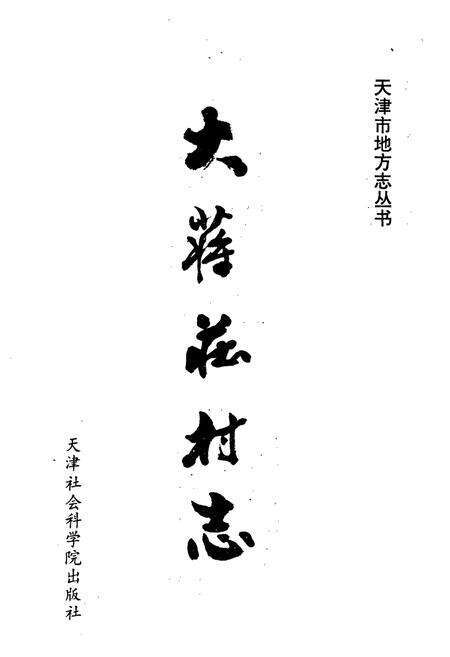 天津市地方志丛书
大蒋莊村志
天津社会科学院出版社